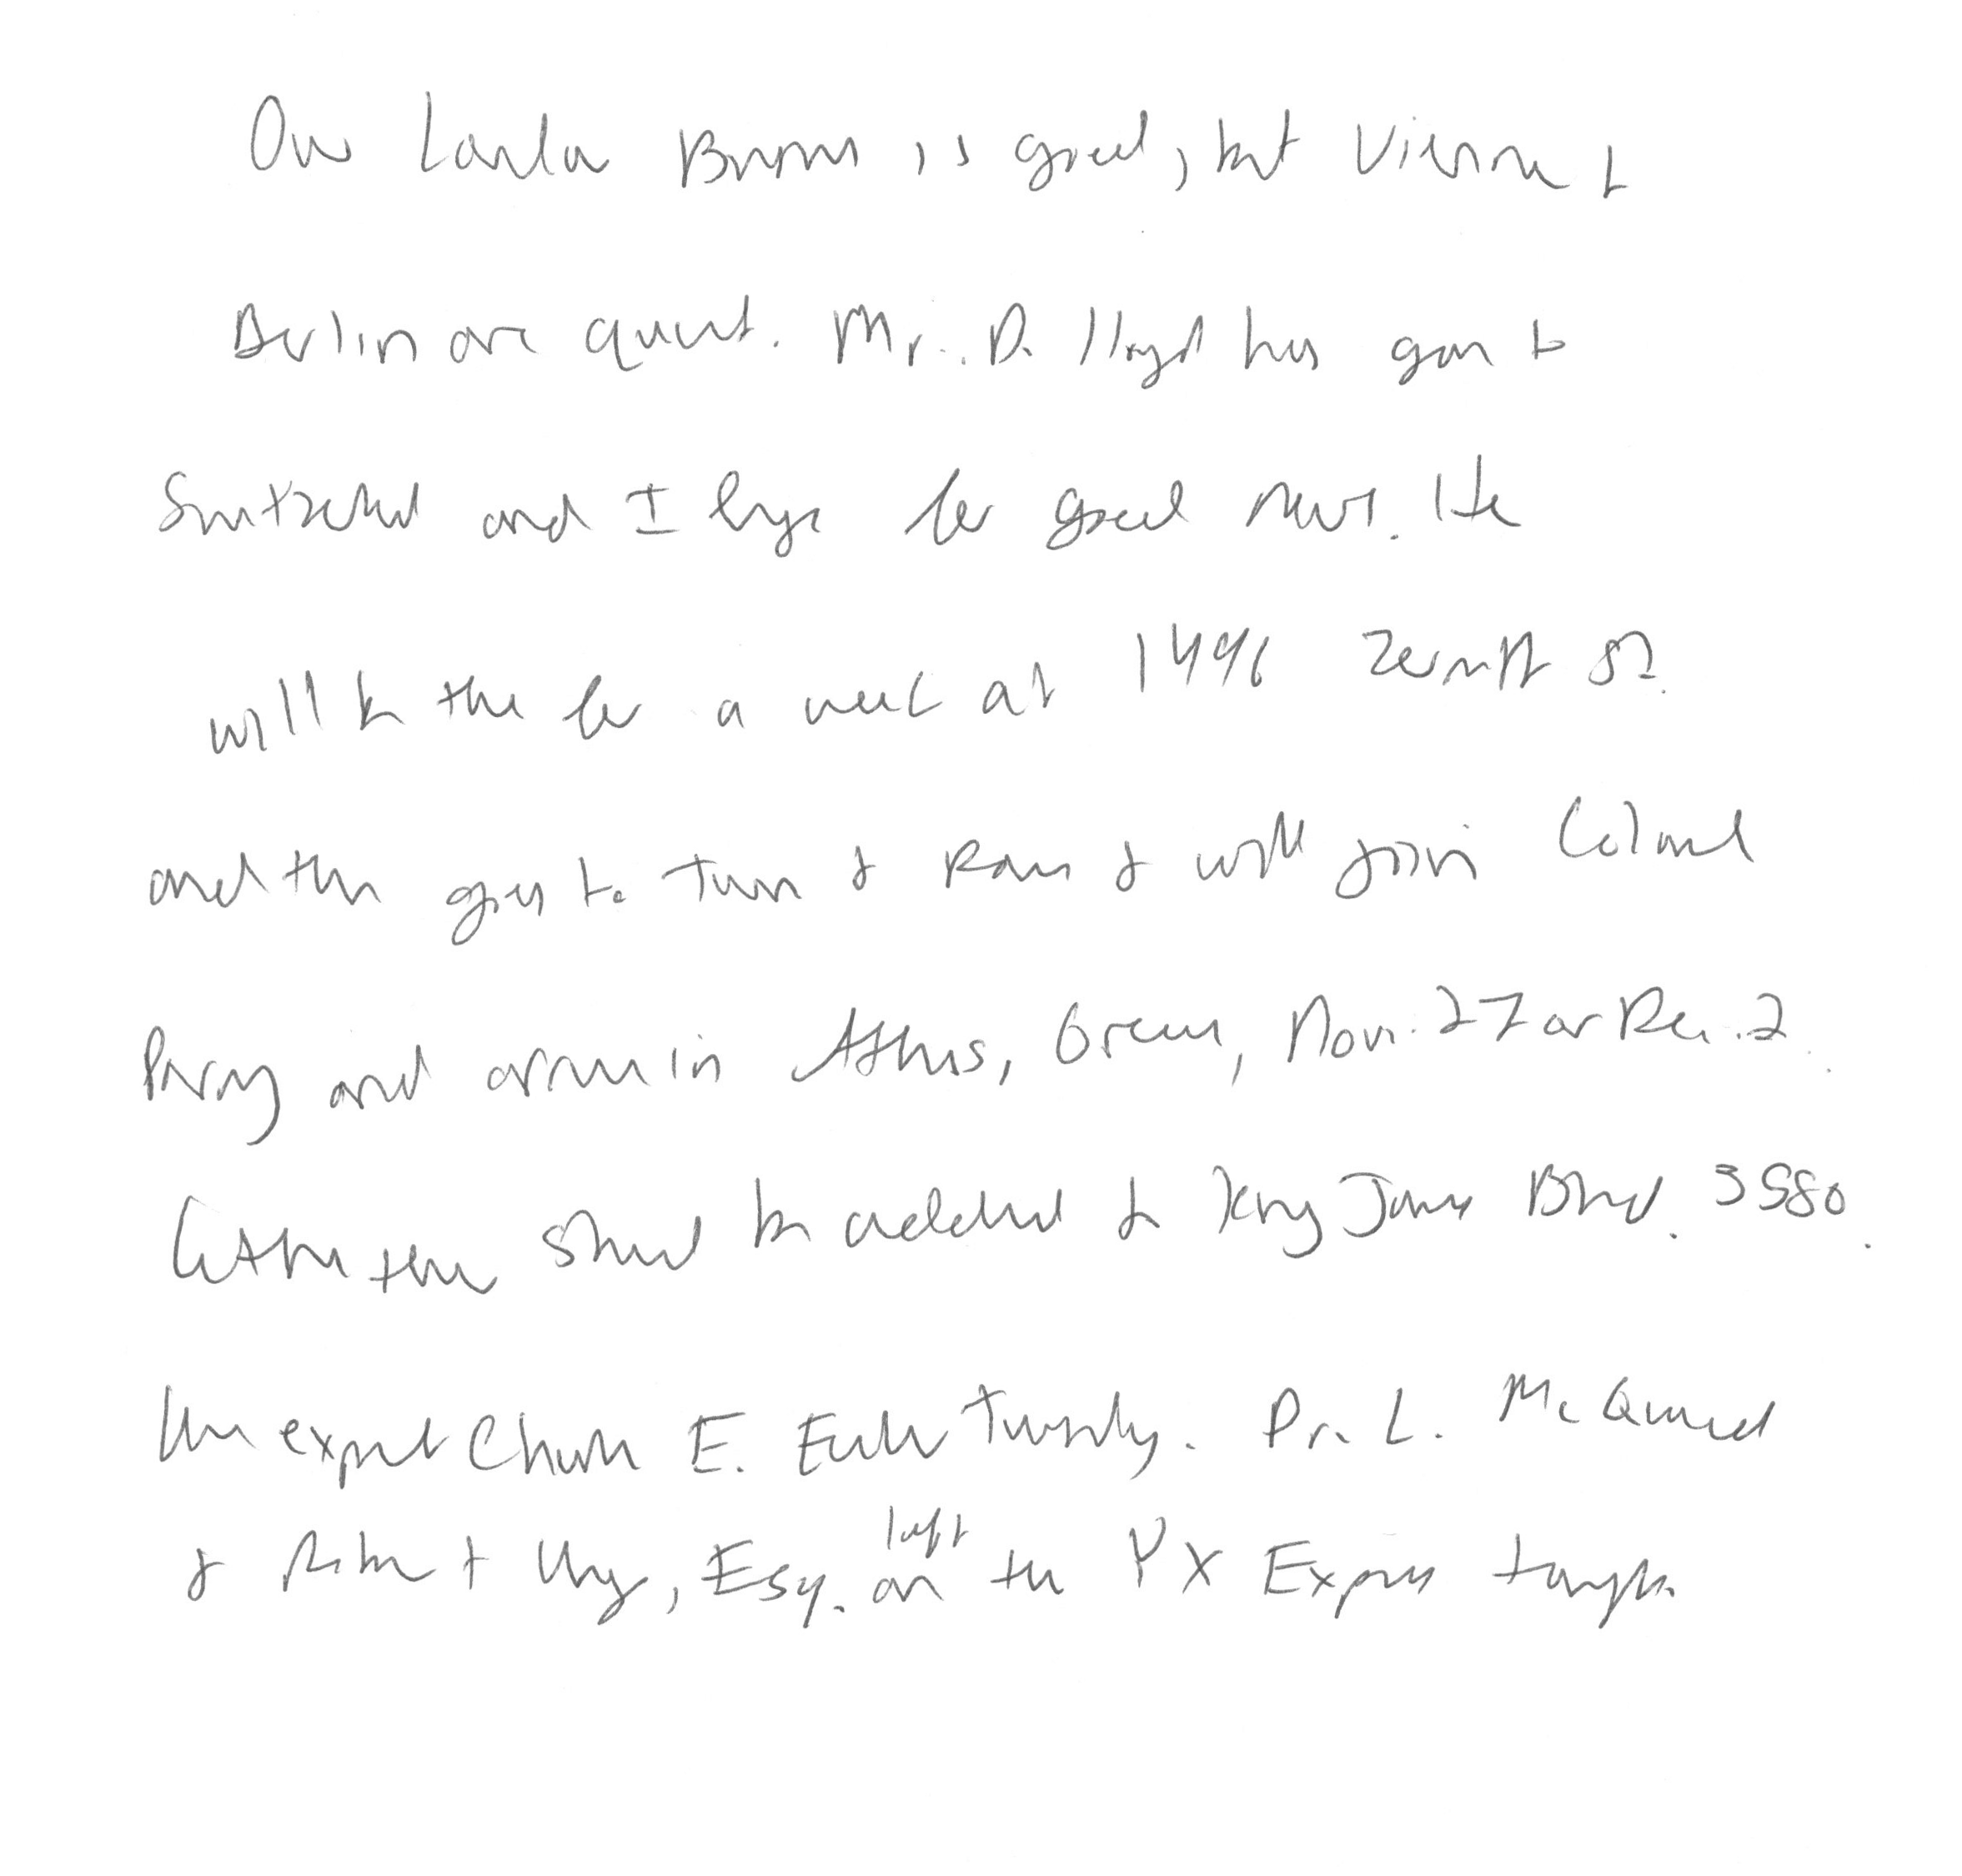 Our London Business is good, but Vienna &
Berlin are quiet. Mr. D. Lloyd has gone to
Switzerland and I hope for good news. He
will be there for a week at 1496 Zermatt St.
and then goes to Turin & Rome & will join Colonel
Parry and arrive in Athens, Greece, Nov. 27 or Dec. 2.
Letters there should be addressed to King James Blvd. 3580.
We expect Charles E. Fuller Tuesday. Dr. L. McQuaid
& Robert Unger, Esq. left on the YX Express tonight.